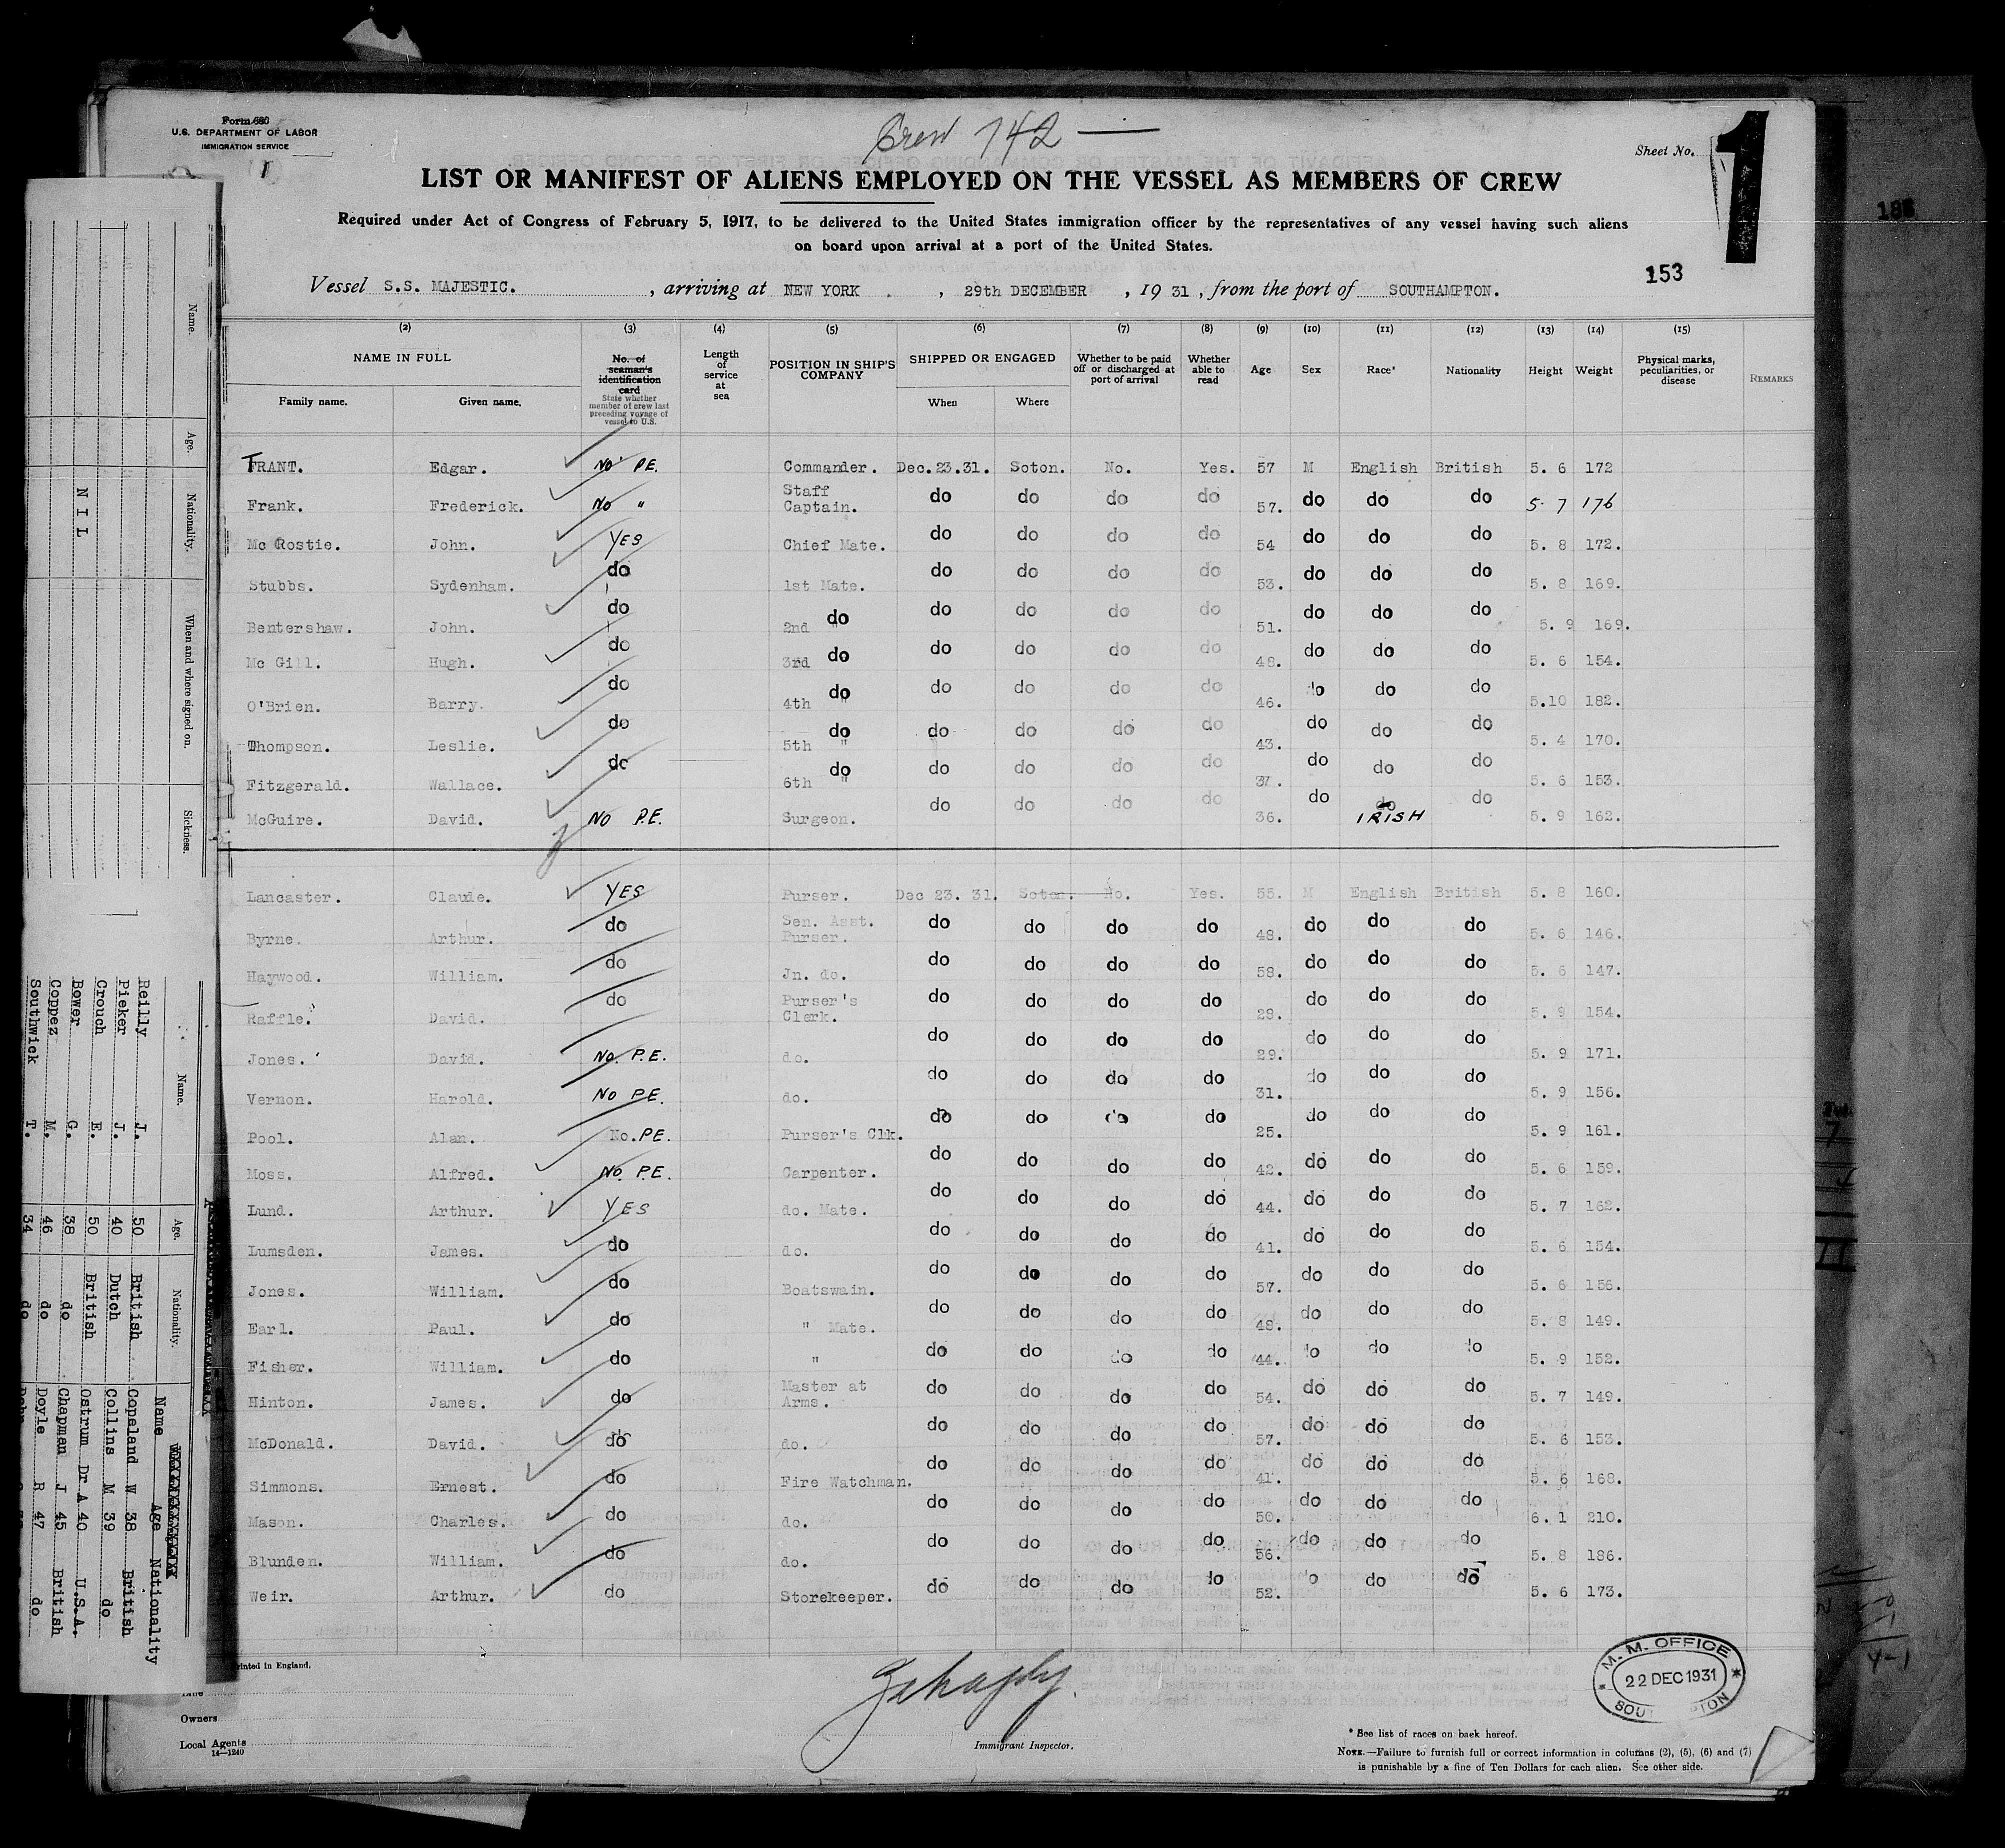 Form 680
U.S. DEPARTMENT OF LABOR
IMMIGRATION SERVICE
1
Crew 742 —
Sheet No. 1
186
LIST OR MANIFEST OF ALIENS EMPLOYED ON THE VESSEL AS MEMBERS OF CREW
Required under Act of Congress of February 5, 1917, to be delivered to the United States immigration officer by the representatives of any vessel having such aliens
on board upon arrival at a port of the United States.
153
Vessel S.S. MAJESTIC. , arriving at NEW YORK , 29th DECEMBER , 19 31 , from the port of SOUTHAMPTON.
(2) (3) (4) (5) (6) (7) (8) (9) (10) (11) (12) (13) (14) (15)
NAME IN FULL
Family name. Given name.
No. of seaman's identification card
State whether member of crew last preceding voyage of vessel to U.S.
Length of service at sea
POSITION IN SHIP'S COMPANY
SHIPPED OR ENGAGED
When Where
Whether to be paid off or discharged at port of arrival
Whether able to read
Age Sex Race* Nationality Height Weight
Physical marks, peculiarities, or disease
REMARKS
FRANT. Edgar. NO P.E. Commander. Dec.23.31. Soton. No. Yes. 57 M English British 5. 6 172
Frank. Frederick. No " Staff Captain. do do do do 57. do do do 5. 7 176
Mc Rostie. John. YES Chief Mate. do do do do 54 do do do 5. 8 172.
Stubbs. Sydenham. do 1st Mate. do do do do 53. do do do 5. 8 169.
Bentershaw. John. do 2nd do do do do do 51. do do do 5. 9 169.
Mc Gill. Hugh. do 3rd do do do do do 48. do do do 5. 6 154.
O'Brien. Barry. do 4th do " do do do do 46. do do do 5.10 182.
Thompson. Leslie. do 5th do " do do do do 43. do do do 5. 4 170.
Fitzgerald. Wallace. do 6th do " do do do do 37. do do do 5. 6 153.
McGuire. David. NO P.E. Surgeon. do do do do 36. do do IRISH do 5. 9 162.
Lancaster. Claude. YES Purser. Dec 23. 31. Soton. No. Yes. 55. M English British 5. 8 160.
Byrne. Arthur. do Sen. Asst. Purser. do do do do 48. do do do 5. 6 146.
Haywood. William. do Jn. do. do do do do 58. do do do 5. 6 147.
Raffle. David. do Purser's Clerk. do do do do 28. do do do 5. 9 154.
Jones. David. NO. P.E. do. do do do do 29. do do do 5. 9 171.
Vernon. Harold. NO P.E. do. do do do do 31. do do do 5. 9 156.
Pool. Alan. No. P.E. Purser's Clk. do do do do 25. do do do 5. 9 161.
Moss. Alfred. NO. P.E. Carpenter. do do do do 42. do do do 5. 6 159.
Lund. Arthur. YES do. Mate. do do do do 44. do do do 5. 7 162.
Lumsden. James. do do. do do do do 41. do do do 5. 6 154.
Jones. William. do Boatswain. do do do do 57. do do do 5. 6 156.
Earl. Paul. do " Mate. do do do do 48. do do do 5. 8 149.
Fisher. William. do " do do do do 44. do do do 5. 9 152.
Hinton. James. do Master at Arms. do do do do 54. do do do 5. 7 149.
McDonald. David. do do. do do do do 57. do do do 5. 6 153.
Simmons. Ernest. do Fire Watchman. do do do do 41. do do do 5. 6 168.
Mason. Charles. do do. do do do do 50. do do do 6. 1 210.
Blunden. William. do do. do do do do 56. do do do 5. 8 186.
Weir. Arthur. do Storekeeper. do do do do 52. do do do 5. 6 173.
Printed in England.
Owners
Local Agents
14—1240
Immigrant Inspector.
M. M. OFFICE
22 DEC 1931
* See list of races on back hereof.
NOTE.—Failure to furnish full or correct information in columns (2), (5), (6) and (7)
is punishable by a fine of Ten Dollars for each alien. See other side.
Name. Age. Nationality. When and where signed on. Sickness.
NIL
Name. Age. Nationality.
Reilly J. 50 British
Pieker J. 40 Dutch
Crouch E. 50 British
Bower G. 38 do
Coppez M. 46 do
Southwick T. 34 do
Name Age Nationality
Copeland W 38 British
Collins M 39 do
Ostrum Dr A 40 U.S.A.
Chapman J 45 British
Doyle R 47 do